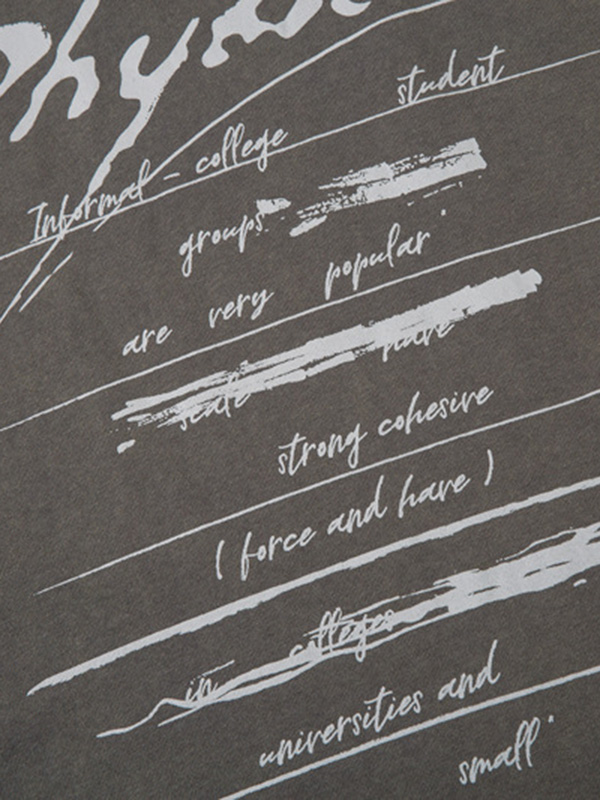 student
Informal - college
groups
are very popular
scale have
strong cohesive
( force and have )
in colleges
universities and
small